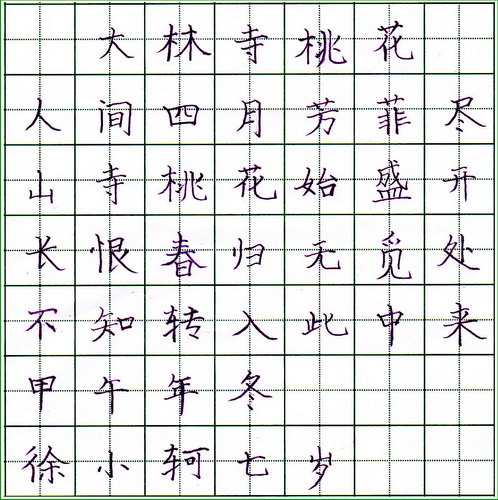 大林寺桃花
人间四月芳菲尽
山寺桃花始盛开
长恨春归无觅处
不知转入此中来
甲午年冬
徐小轲七岁